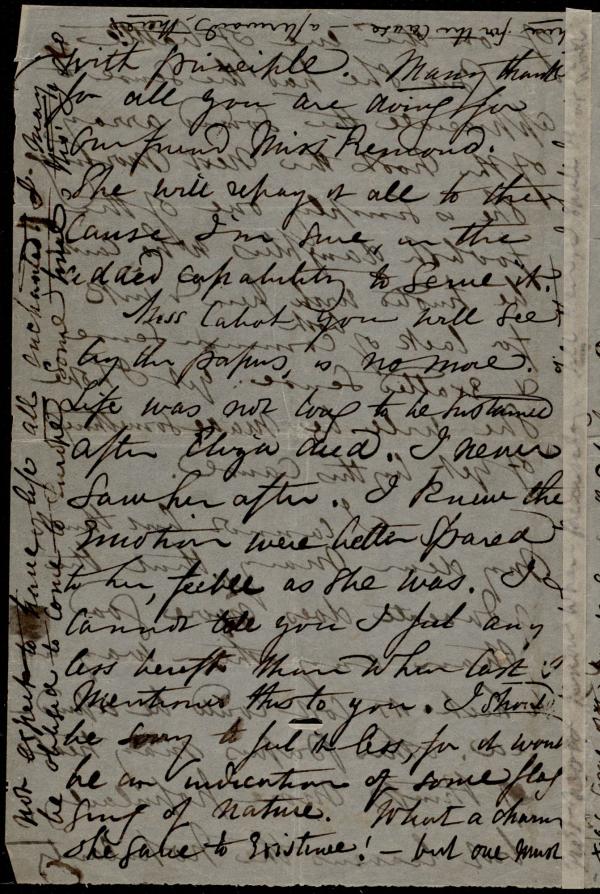 with principle. Many thanks
for all you are doing for
our friend Miss Remond.
She will repay it all to the
Cause I'm sure, in the
added capability to serve it.
Miss Cabot, you will see
by the papers, is no more.
Life was not long to be sustained
after Eliza died. I never
saw her after. I knew the
emotion were better spared
to her, feeble as she was. I
cannot tell you I feel any
less bereft than when last I
mentioned this to you. I should
be sorry to feel it less, for it would
be an indication of some flag
ging of nature. What a charm
she gave to Existence! — but one must
not expect to have life all enchanted
be obliged to come to some